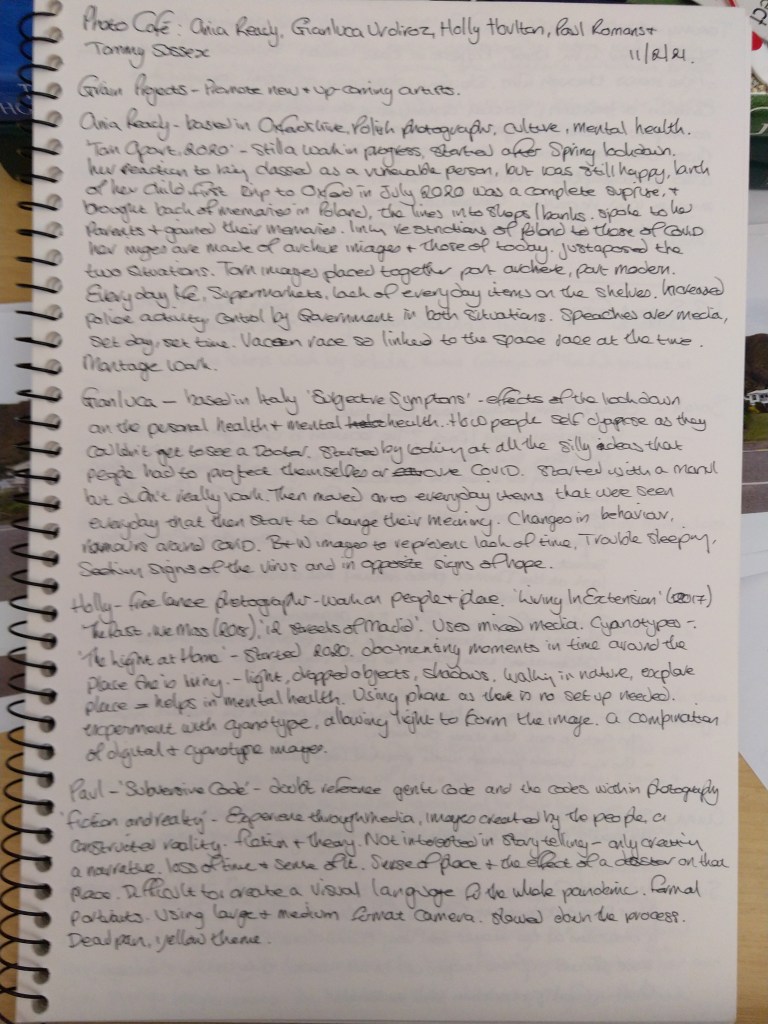 Photo Café: Ania Ready, Gianluca Urdiroz, Holly Houlton, Paul Romans +
Tammy Sassex 11/2/21.
Grain Projects - Promote new + up-coming artists.
Ania Ready - based in Oxfordshire, Polish photographer, culture, mental health.
'Torn Apart, 2020' - Still a work in progress, started after Spring lockdown.
her reaction to being classed as a vunerable person, but was still happy, birth
of her child. first trip to Oxford in July 2020 was a complete suprise, +
brought back of memories in Poland, the lines into shops/banks. spoke to her
Parents + gained their memories. link restrictions of Poland to those of Covid
her images are made of archive images + those of today. juxtaposed the
two situations. Torn images placed together part archive, part modern.
Everyday life, Supermarkets, lack of everyday items on the shelves. Increased
Police activity, control by Government in both situations. Speaches over media,
set day, set time. Vaccen race so linked to the space race at the time.
Montage work.
Gianluca - based in Italy 'Subjective Symptons' - effects of the lockdown
on the personal health + mental health. How people self diagnose as they
couldn't get to see a Doctor. Started by looking at all the silly ideas that
people had to protect themselfes or cure Covid. Started with a
but didn't really work. Then moved onto everyday items that were seen
everyday that then start to change their meaning. Changes in behaviour,
rumours around Covid. B+W images to represent lack of time, Trouble sleeping,
Seeking signs of the virus and in opposite signs of hope.
Holly - free lance photographer - work on people + place. 'Living In Extension' (2017)
'The Past, we Miss (2018), '12 streets of Madrid'. Uses mixed media. Cyanotypes -
'The Light at Home' - started 2020. documenting moments in time around the
place she is living. - light, dropped objects, shadows. Walking in nature, explore
place = helps in mental health. Using phone as there is no set up needed.
experiment with cyanotype, allowing light to form the image. a combination
of digital + cyanotype images.
Paul - 'Subversive Code' - doubt reference gentic code and the codes within photography
'fiction and reality' - Experience through media, images created by the people, a
constructed reality. fiction + theory. Not interested in story telling - only creating
a narrative. loss of time + sense of it. Sense of place + the effect of a on that
place. Difficult to create a visual language to the whole pandemic. formal
portraits. Using large + medium format camera. slowed down the process.
Deadpan, yellow theme.